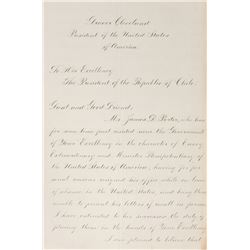 Grover Cleveland
President of the United States
of America.
To His Excellency
The President of the Republic of Chile.
Great and Good Friend,
Mr. James D. Porter, who has
for some time past resided near the Government
of Your Excellency in the character of Envoy
Extraordinary and Minister Plenipotentiary of
the United States of America, having for per-
sonal reasons resigned his office while on leave
of absence in the United States, and being thus
unable to present his letters of recall in person
I have entrusted to his successor the duty of
placing them in the hands of Your Excellency.
I am pleased to believe that